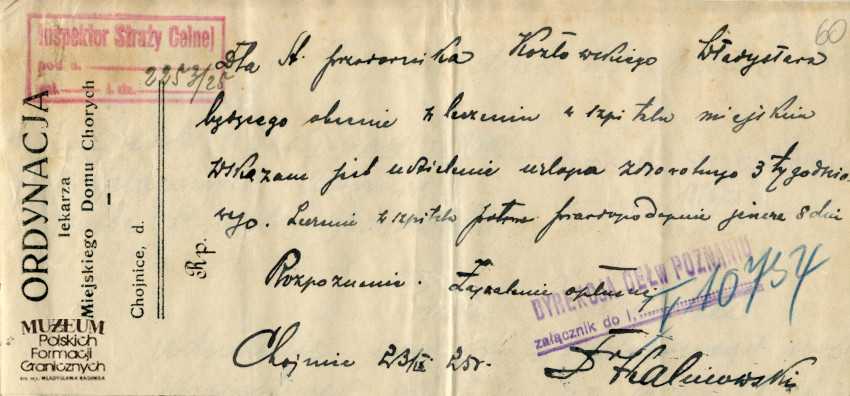 60
Inspektor Straży Celnej
2253/25
ORDYNACJA
lekarza
Miejskiego Domu Chorych
Chojnice, d.
Rp.
Dla St. przodownika Kozłowskiego Władysława
będącego obecnie w leczeniu w szpitalu miejskim
wskazane jest udzielenie urlopu zdrowotnego 3 tygodnio-
wego. Leczenie w szpitalu potrwa prawdopodobnie jeszcze 8 dni
Rozpoznanie. Zapalenie opłucnej
DYREKCJA CEŁ W POZNANIU
załącznik do l.
I 10754
Chojnice 23/IX 25r.
Dr Kalinowski
MUZEUM
Polskich
Formacji
Granicznych
im. mjr. WŁADYSŁAWA RAGINISA